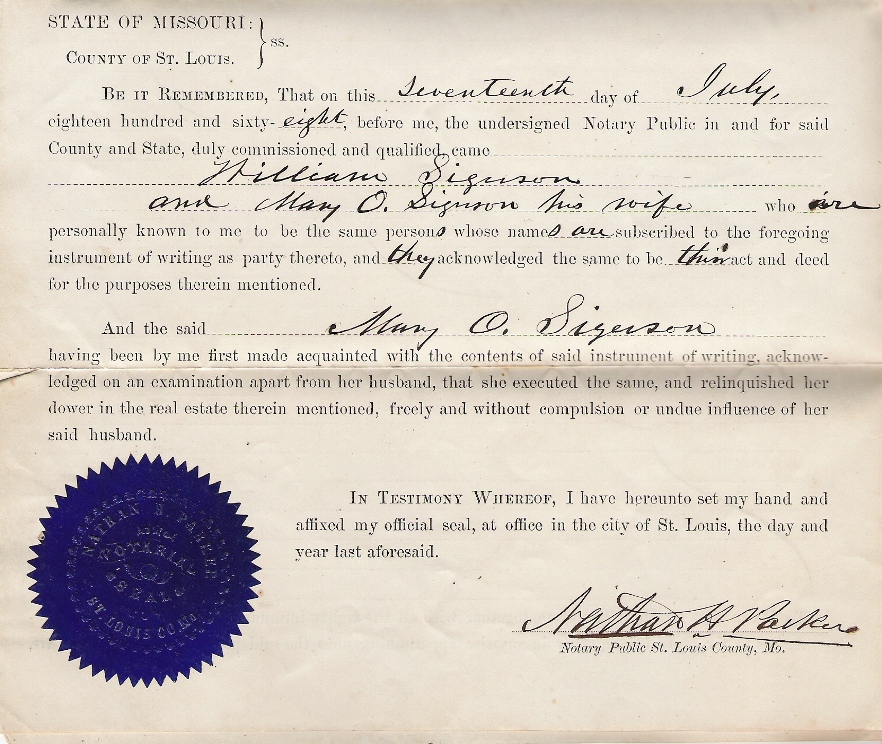 STATE OF MISSOURI:
ss.
COUNTY OF ST. LOUIS.
BE IT REMEMBERED, That on this seventeenth day of July,
eighteen hundred and sixty-eight, before me, the undersigned Notary Public in and for said
County and State, duly commissioned and qualified, came
William Sigerson
and Mary O. Sigerson his wife who are
personally known to me to be the same persons whose names are subscribed to the foregoing
instrument of writing as party thereto, and they acknowledged the same to be their act and deed
for the purposes therein mentioned.
And the said Mary O. Sigerson
having been by me first made acquainted with the contents of said instrument of writing, acknow-
ledged on an examination apart from her husband, that she executed the same, and relinquished her
dower in the real estate therein mentioned, freely and without compulsion or undue influence of her
said husband.
IN TESTIMONY WHEREOF, I have hereunto set my hand and
affixed my official seal, at office in the city of St. Louis, the day and
year last aforesaid.
NATHAN H. PARKER
NOTARIAL
SEAL
ST LOUIS CO. MO.
Nathan H Parker
Notary Public St. Louis County, Mo.